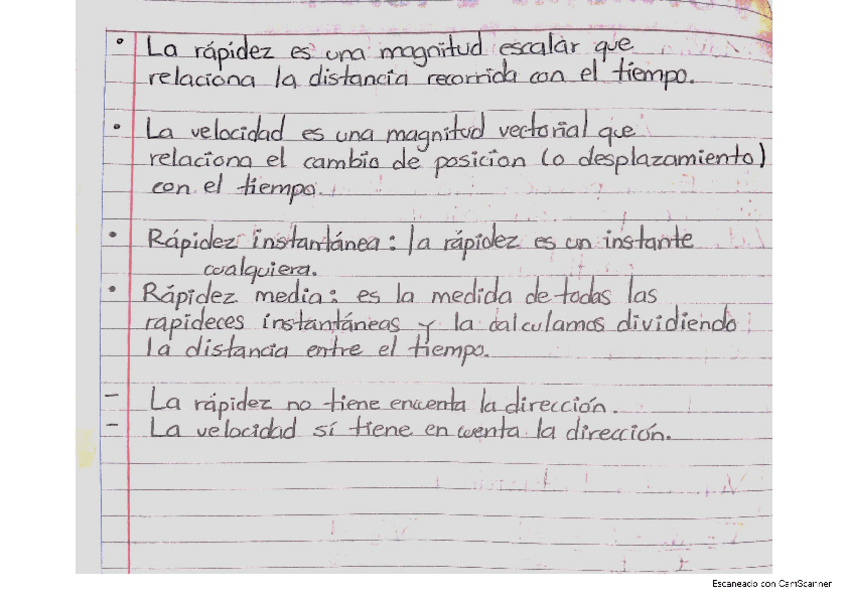 • La rápidez es una magnitud escalar que
relaciona la distancia recorrida con el tiempo.
• La velocidad es una magnitud vectorial que
relaciona el cambio de posicion (o desplazamiento)
con el tiempo.
• Rápidez instantánea: la rápidez es un instante
cualquiera.
• Rápidez media: es la medida de todas las
rapideces instantáneas y la calculamos dividiendo
la distancia entre el tiempo.
- La rápidez no tiene encuenta la dirección.
- La velocidad sí tiene en cuenta la dirección.
Escaneado con CamScanner